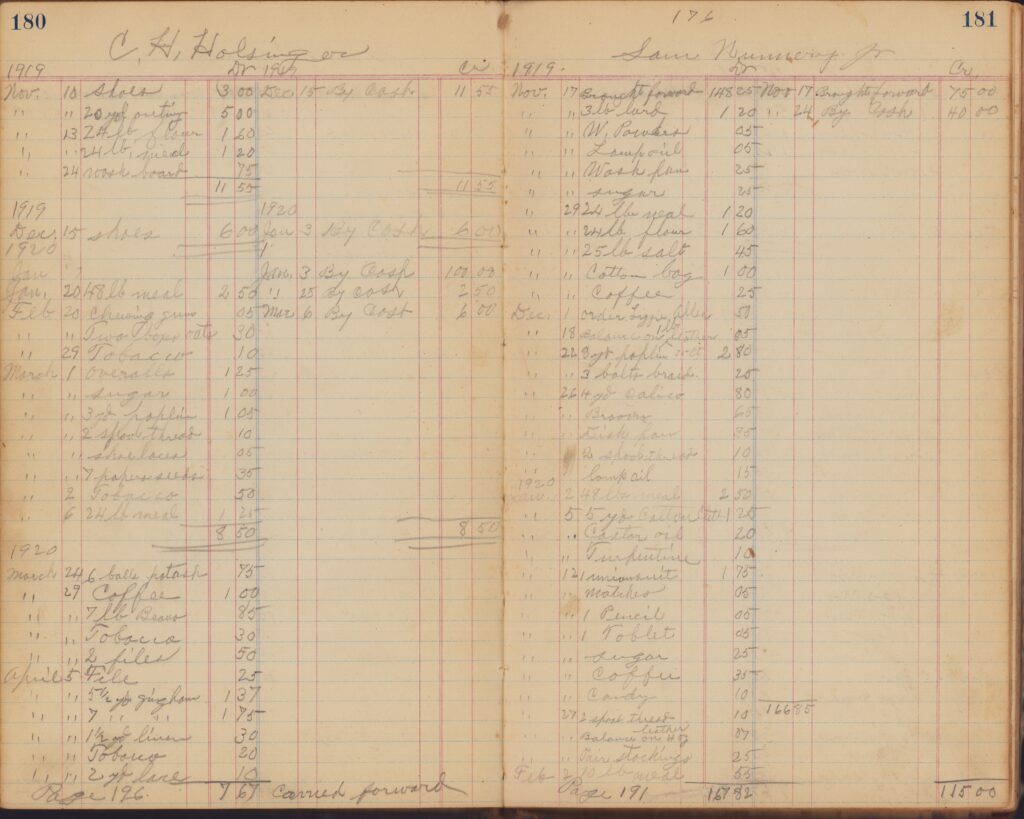 180
C. H. Holsinger
1919 Dr 1919 Cr
Nov. 10 Shoes 3 00 Dec 15 By Cash 11 55
" " 20 yd outing 5 00
" 13 24 lb flour 1 60
" " 24 lb meal 1 20
" 24 wash board 75
11 55 11 55
1919 1920
Dec. 15 Shoes 6 00 Jan 3 By Cash 6 00
1920
Jan Jan. 3 By Cash 100 00
Jan. 20 48 lb meal 2 50 " 25 By Cash 2 50
Feb 20 Chewing gum 05 Mar 6 By Cost 6 00
" " Two boxes oats 30
" 29 Tobacco 10
March 1 Overalls 1 25
" " sugar 1 00
" " 3 yd poplin 1 05
" " 2 spool thread 10
" " shoe laces 05
" " 7 papers seeds 35
" 2 Tobacco 50
" 6 24 lb meal 1 25
8 50 8 50
1920
March 24 6 balls potash 75
" 29 Coffee 1 00
" " 7 lb Beans 85
" " Tobacco 30
" " 2 files 50
April 5 File 25
" " 5 1/2 yd gingham 1 37
" " 7 " " 1 75
" " 1 1/2 yd linen 30
" " Tobacco 20
" " 2 yd lace 10
Page 196. 7 67 Carried forward
176
181
Sam Jr
1919. Dr Cr.
Nov. 17 Brought forward 148 25 Nov 17 Brought forward 75 00
" " 3 lb lard 1 20 " 24 By Cash 40 00
" " W. Powders 05
" " Lamp oil 05
" " Wash pan 25
" " sugar 25
" 29 24 lb meal 1 20
" " 24 lb flour 1 60
" " 25 lb salt 45
" " Cotton bag 1 00
" " Coffee 25
Dec. 1 order 50
" 18 Balance on leather 05
" 22 3 yd poplin 2 80
" " 3 bolts braid 25
" 26 4 yd Calico 80
" " Broom 65
" " Dish pan 35
" " 2 spool thread 10
" " lamp oil 15
1920
Jan. 2 48 lb meal 2 50
" 5 5 yd Cotton 1 25
" " Castor oil 20
" " Turpentine 10
" 12 1 unionsuit 1 75
" " Matches 05
" " 1 Pencil 05
" " 1 Tablet 05
" " sugar 25
" " Coffee 35
" " Candy 10
" 27 2 spool thread 10 166 85
" " Balance on leather 07
" " Pair stockings 25
Feb 2 10 lb meal 55
Page 191 167 82 115 00